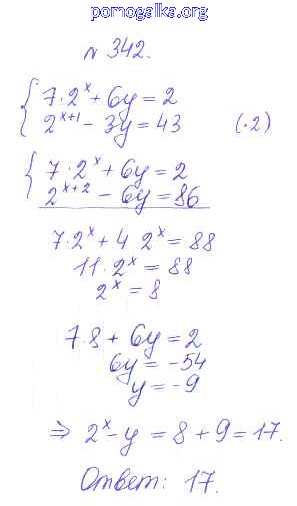 pomogalka.org
№ 342.
7·2^x + 6y = 2
2^(x+1) - 3y = 43 (·2)
7·2^x + 6y = 2
2^(x+2) - 6y = 86
7·2^x + 4 2^x = 88
11·2^x = 88
2^x = 8
7·8 + 6y = 2
6y = -54
y = -9
⇒ 2^x - y = 8 + 9 = 17.
Ответ: 17.